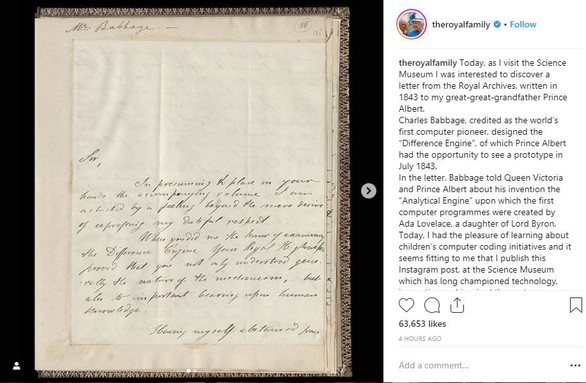 Mr. Babbage. —
Sir,
In presuming to place in your
hands the accompanying volume I am
actuated by a feeling beyond the mere desire
of expressing my dutiful respect.
When you did me the honor of examining
the Difference Engine Your Royal Highness
proved that you not only understood gene-
rally the nature of the mechanism, but
also its important bearing upon human
knowledge.
Having myself abstained from
theroyalfamily • Follow
theroyalfamily Today, as I visit the Science
Museum I was interested to discover a
letter from the Royal Archives, written in
1843 to my great-great-grandfather Prince
Albert.
Charles Babbage, credited as the world's
first computer pioneer, designed the
"Difference Engine", of which Prince Albert
had the opportunity to see a prototype in
July 1843.
In the letter, Babbage told Queen Victoria
and Prince Albert about his invention the
"Analytical Engine" upon which the first
computer programmes were created by
Ada Lovelace, a daughter of Lord Byron.
Today, I had the pleasure of learning about
children's computer coding initiatives and it
seems fitting to me that I publish this
Instagram post, at the Science Museum
which has long championed technology,
63,653 likes
4 HOURS AGO
Add a comment...